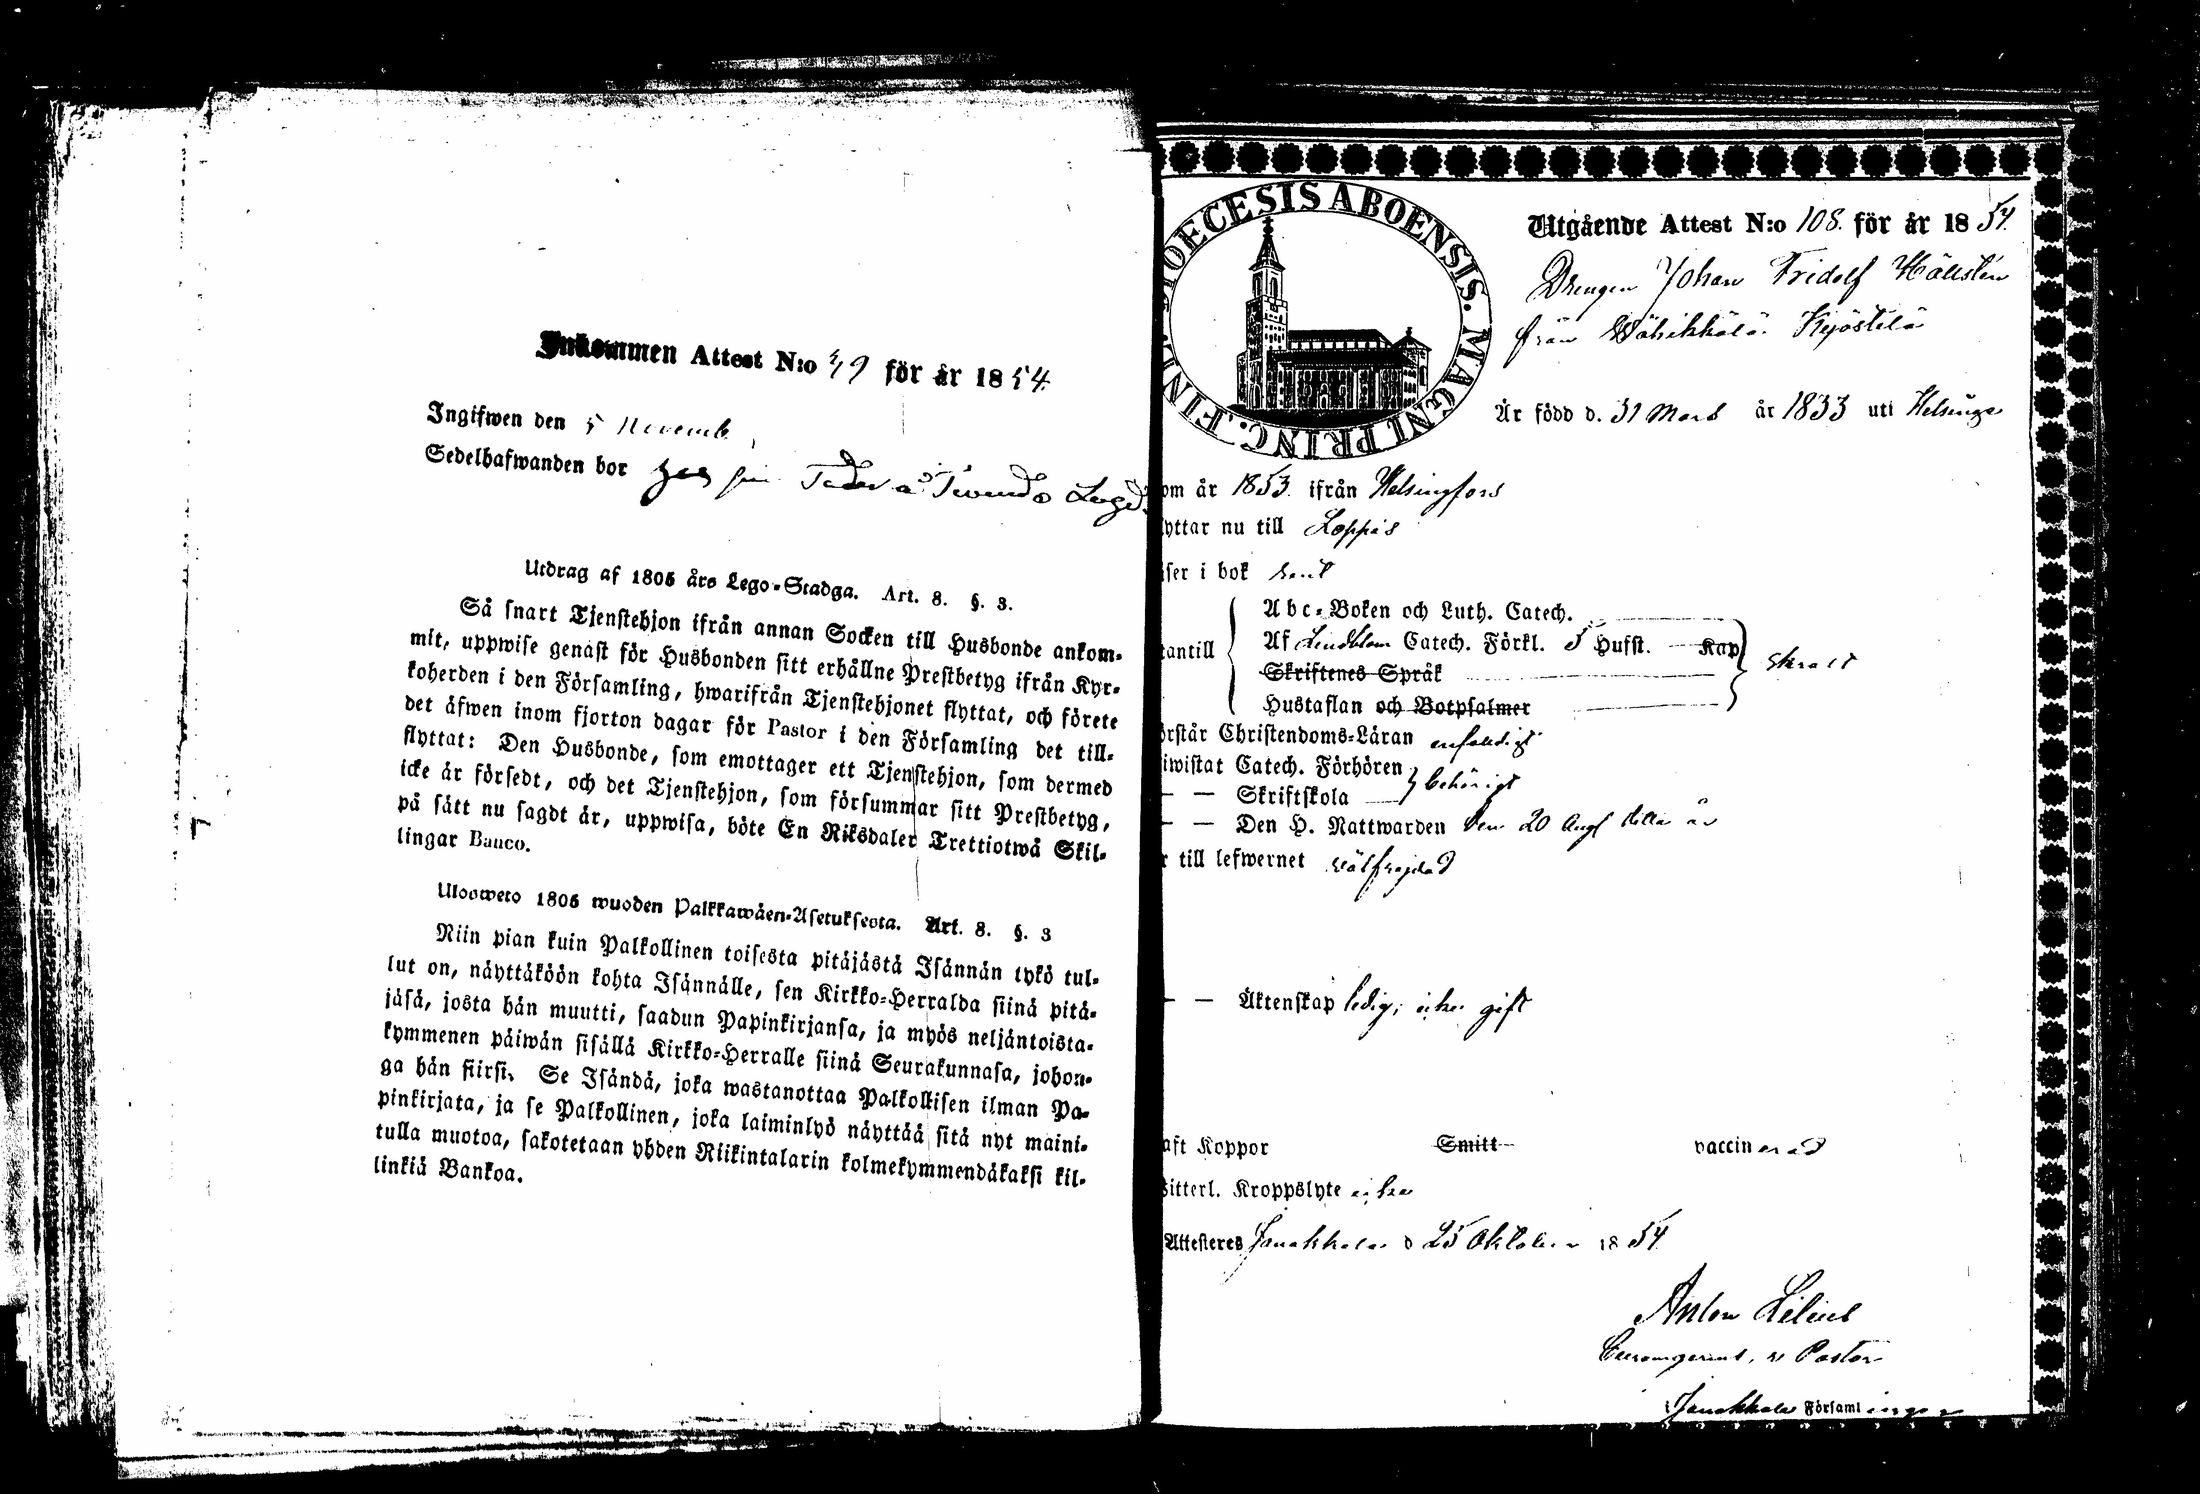 Inkommen Attest N:o 49 för år 1854.
Ingifwen den 5 Novemb.
Sedelhafwanden bor hos sin
Utdrag af 1805 års Lego-Stadga. Art. 8. §. 3.
Så snart Tjenstehjon ifrån annan Socken till Husbonde ankom-
mit, uppwise genast för Husbonden sitt erhållne Prestbetyg ifrån Kyr-
koherden i den Församling, hwarifrån Tjenstehjonet flyttat, och förete
det äfwen inom fjorton dagar för Pastor i den Församling det till-
flyttat: Den Husbonde, som emottager ett Tjenstehjon, som dermed
icke är försedt, och det Tjenstehjon, som försummar sitt Prestbetyg,
på sätt nu sagdt är, uppwisa, böte En Riksdaler Trettiotwå Skil-
lingar Banco.
Ulosweto 1805 wuoden Palkkawäen-Asetuksesta. Art. 8. §. 3
Niin pian kuin Palkollinen toisesta pitäjästä Isännän tykö tul-
lut on, näyttäköön kohta Isännälle, sen Kirkko-Herralda siinä pitä-
jäsä, josta hän muutti, saadun Papinkirjansa, ja myös neljäntoista-
kymmenen päiwän sisällä Kirkko-Herralle siinä Seurakunnasa, johon-
ga hän siirsi. Se Isändä, joka wastanottaa Palkollisen ilman Pa-
pinkirjata, ja se Palkollinen, joka laiminlyö näyttää sitä nyt maini-
tulla muotoa, sakotetaan yhden Riikintalarin kolmekymmendäkaksi kil-
linkiä Bankoa.
DIOECESIS ABOENSIS. MAGNI PRINC. FINL.
Utgående Attest N:o 108. för år 1854.
Drengen Johan Fridolf Hällsten
från Wähikkälä
Är född d. 31 Mars år 1833 uti Helsinge
om år 1853. ifrån Helsingfors
lyttar nu till Loppis
äser i bok rent
Abc-Boken och Luth. Catech.
utantill Af Lindblom Catech. Förkl. 5 Hufst. Kap
Skriftenes Språk
Hustaflan och Botpsalmer
örstår Christendoms-Läran enfaldigt
iwistat Catech. Förhören behörigt
— — Skriftskola
— — Den H. Nattwarden den 20 Aug detta år
r till lefwernet välfrejdad
— — Äktenskap ledig; icke gift
aft Koppor Smitt vaccinerad
Witterl. Kroppslyte icke
Attesteres Janakkala d 25 Oktober 1854.
Anton Lilius
Pastor
i Janakkala Församlingar